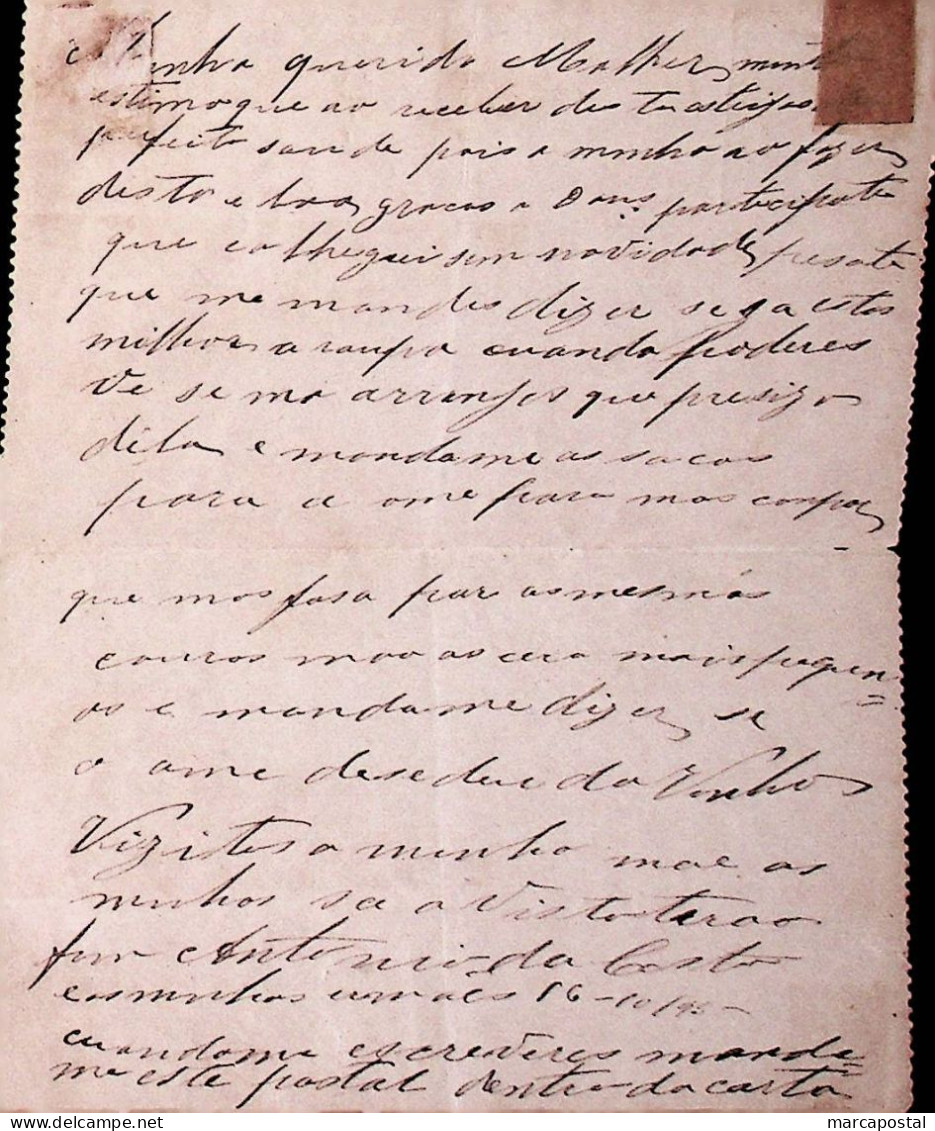 Minha querida Molher
estimo que ao receber des ta estejas
prefeita saude pois a minha ao fazer
desta e boa graças a Daus partecipate
que ca theguei sem novidade pesote
que me mandes dizer se ja estas
milhor a roupa cuando poderes
Ve se ma arranjas que presizo
dela e mandame as sacas
para a ome para mas
que mas fasa par as mesmas
mais pequen=
as e mandame dizer se
o ome desedeu do Vinho
Vizitas a minha mae as
minhas so a Vista terao
fim Antonio da Costa
e as minhas irmaes 16-10/95-
cuandome escreveres manda=
me este postal dentro da carta
marcapostal